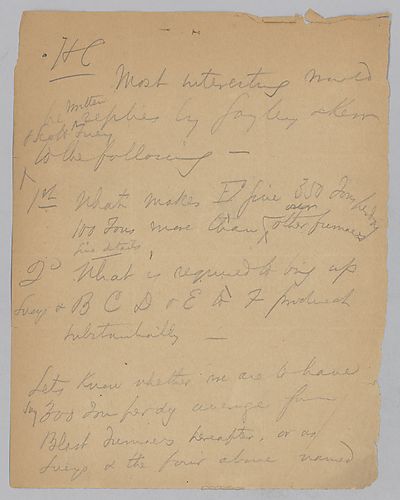 HC
Most interesting would
be written replies by Gayley & Kerr
& Scott Lucy
to the following —
1st What makes F give 350 Tons per day
100 Tons more than our other furnaces
give details
2d What is required to bring up
Lucys & B C D & E to F product
substantially —
Lets know whether we are to have
say 300 Ton per dy average from
Blast Furnaces hereafter, or as
Lucys & the four above named